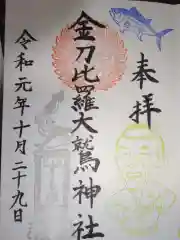 奉拝
金刀比羅大鷲神社
令和元年十月二十九日